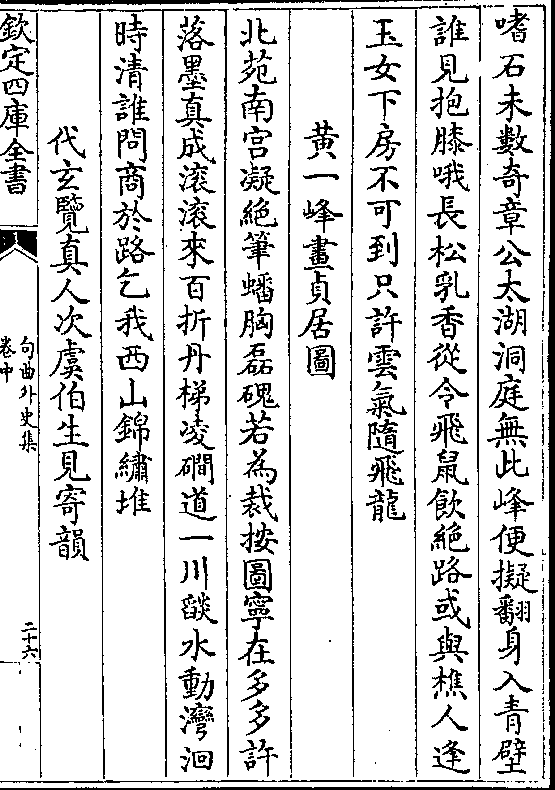 嗜石未數奇章公太湖洞庭無此峰便擬翻身入青壁
誰見抱膝哦長松乳香從令飛鼠飲絶路或與樵人逢
玉女下房不可到只許雲氣隨飛龍
黄一峰畫貞居圖
北苑南宫凝絶筆蟠胸磊磈若為裁按圖寧在多多許
落墨真成滚滚來百折丹梯凌磵道一川燄水動灣洄
時清誰問商於路乞我西山錦繡堆
代玄覽真人次虞伯生見寄韻
欽定四庫全書
句曲外史集
卷中
二十六